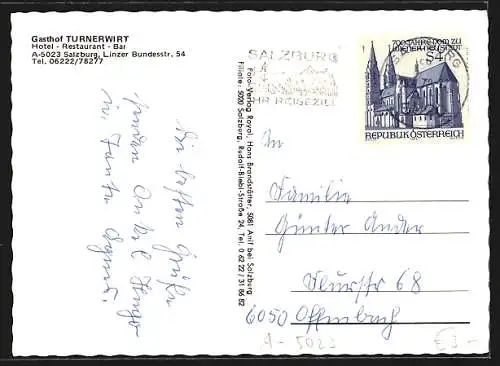 Gasthof TURNERWIRT
Hotel - Restaurant - Bar
A-5023 Salzburg, Linzer Bundesstr. 54
Tel. 06222/78277
Die besten Grüße
senden Onkel Hugo
u. Tante Agnes.
Foto-Verlag Royal, Hans Brandstätter, 5081 Anif bei Salzburg
Filiale: 5020 Salzburg, Rudolf-Biebl-Straße 24, Tel. 0 62 22 / 31 68 82
SALZBURG
IHR REISEZIEL
700 JAHRE DOM ZU
WIENER NEUSTADT
S4
REPUBLIK ÖSTERREICH
An
Familie
Günter Ander
Flurstr 68
6050 Offenbach
A-5023
€3-